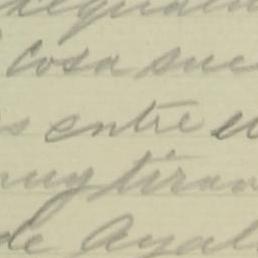 cosa suc
s entre e
muy tiran
de Ayal